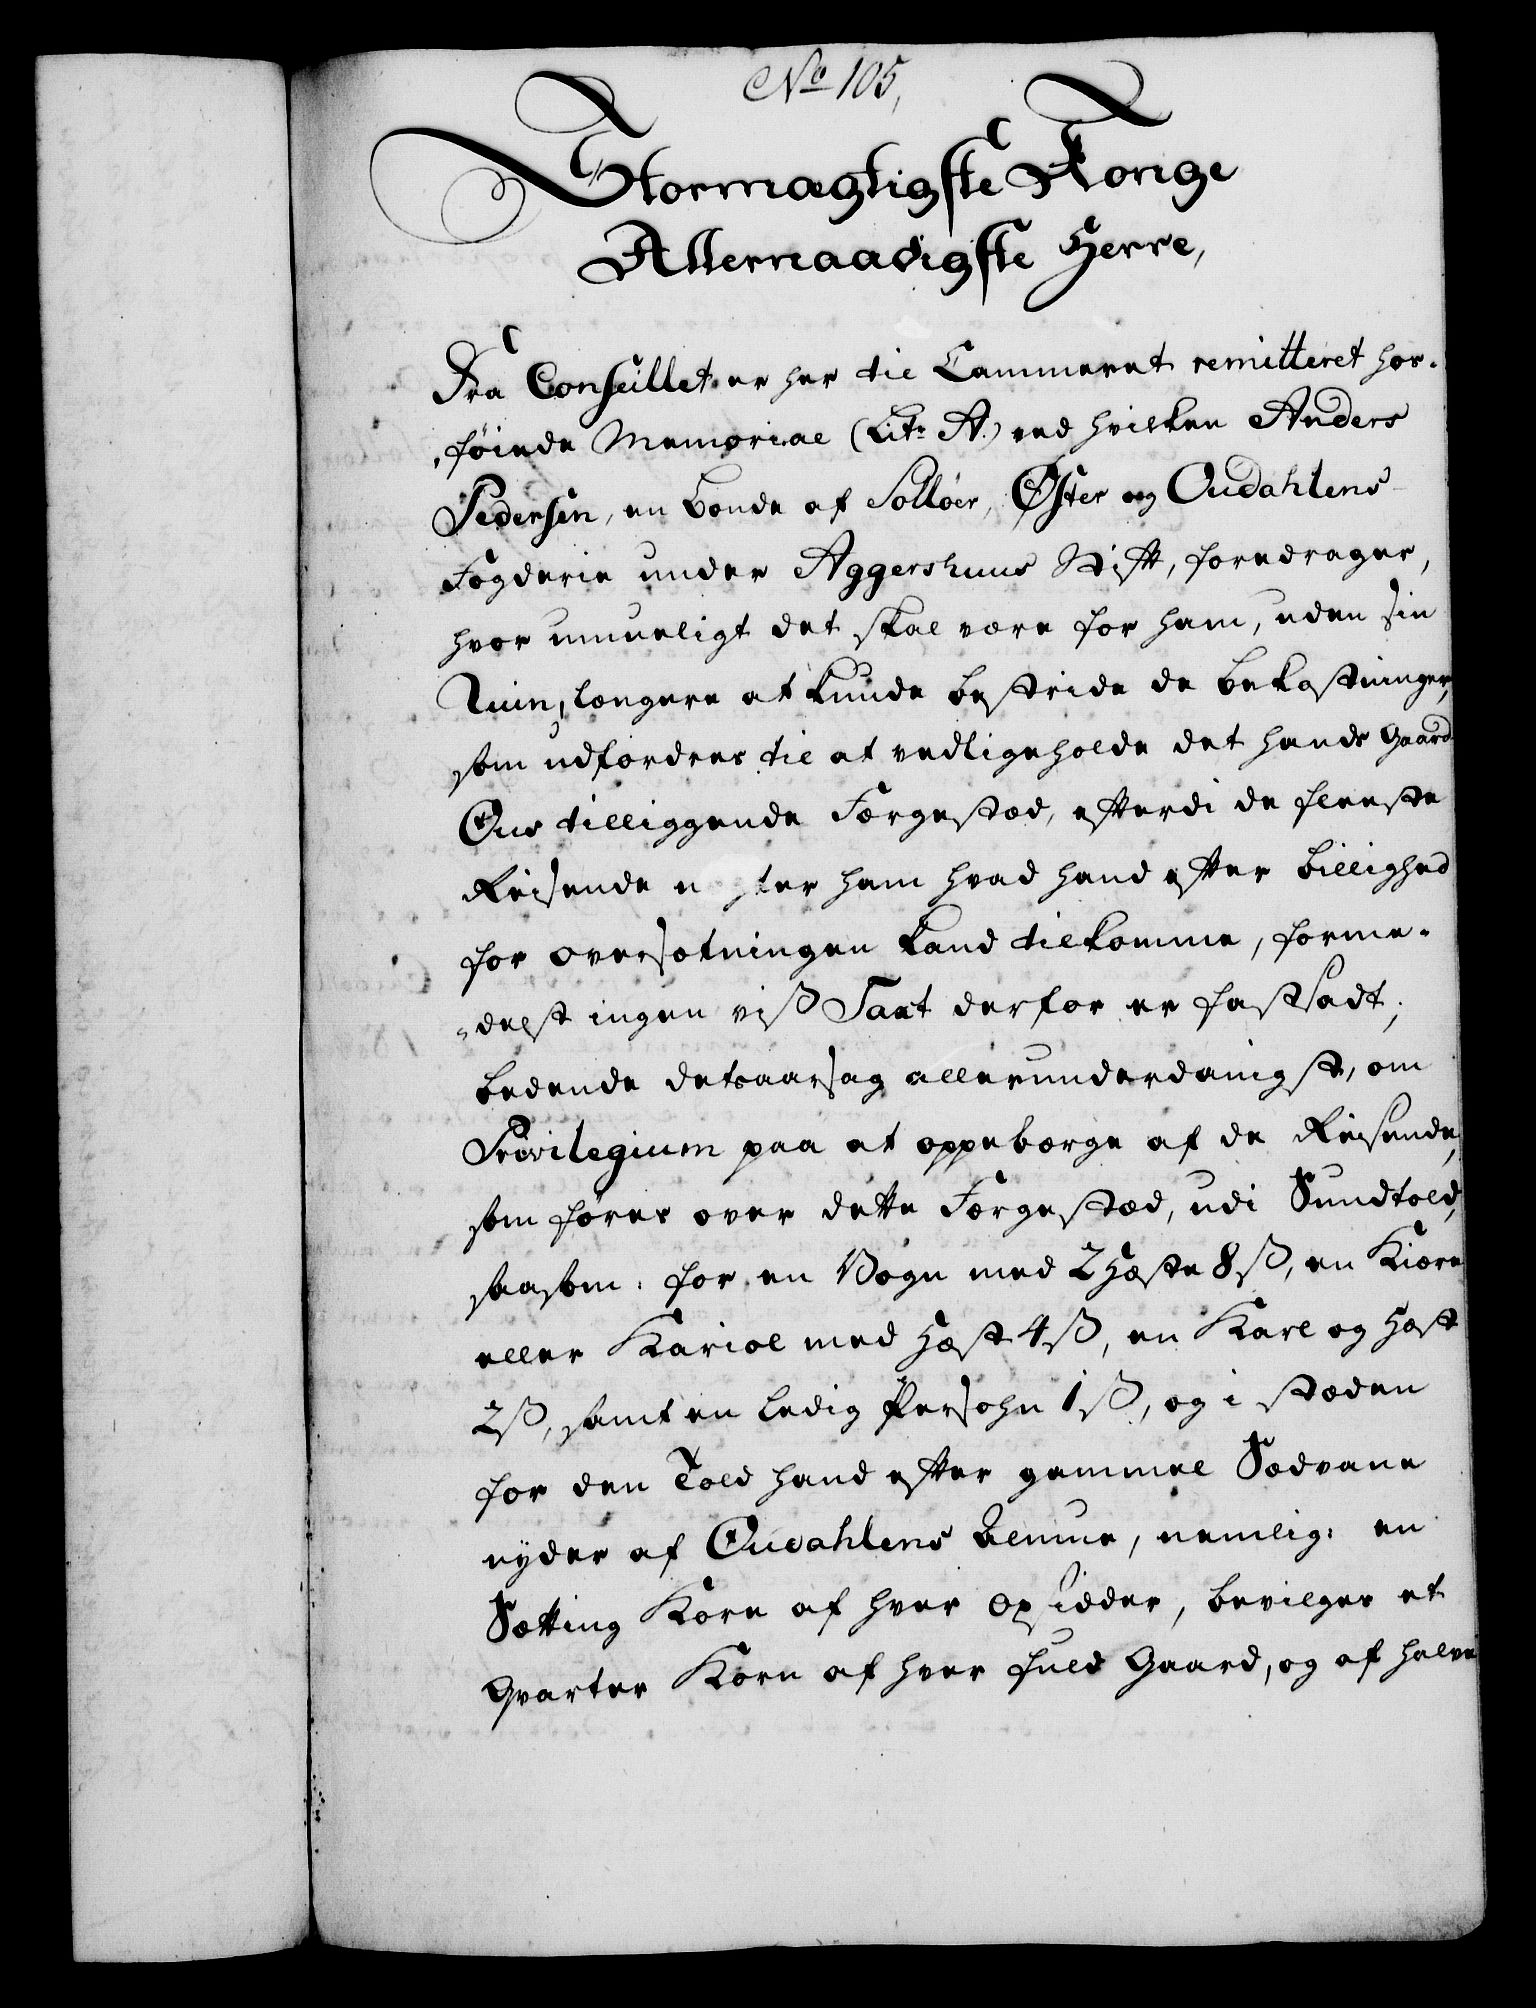 No 105,
Stormægtigste Konge
Allernaadigste Herre,
Fra Conseillet er her til Cammeret remitteret hos-
føiede Memorial (Litr A.) ved hvilken Anders
Pedersen, en bonde af Solløer, Øster og Oudahlens
Fogderie under Aggershuus Stift, foredrager,
hvor umueligt det skal være for ham, uden sin
Ruin, længere at kunde bestride de bekostninger,
som udfordres til at vedligeholde det hands Gaard
Ous tilliggende Færgestæd, efterdi de fleeste
Reisende negter ham hvad hand efter billighed
for oversætningen kand tilkomme, forme-
-delst ingen viß Taxt derfor er fastsadt;
bedende detsaarsag allerunderdanigst, om
Privilegium paa at oppebærge af de Reisende,
som føres over dette Færgestæd, udi Sundtold,
saasom: for en Vogn med 2 Heste 8 ß, en Kiærre
eller Kariol med Hest 4 ß, en Karl og Hest
2 ß, samt en ledig Persohn 1 ß, og i stæden
for den Told hand efter gammel Sædvane
nyder af Oudahlens Almue, nemlig: en
Sætting Korn af hver Opsidder, bevilges et
Qvarter Korn af hver fuld Gaard, og af halve